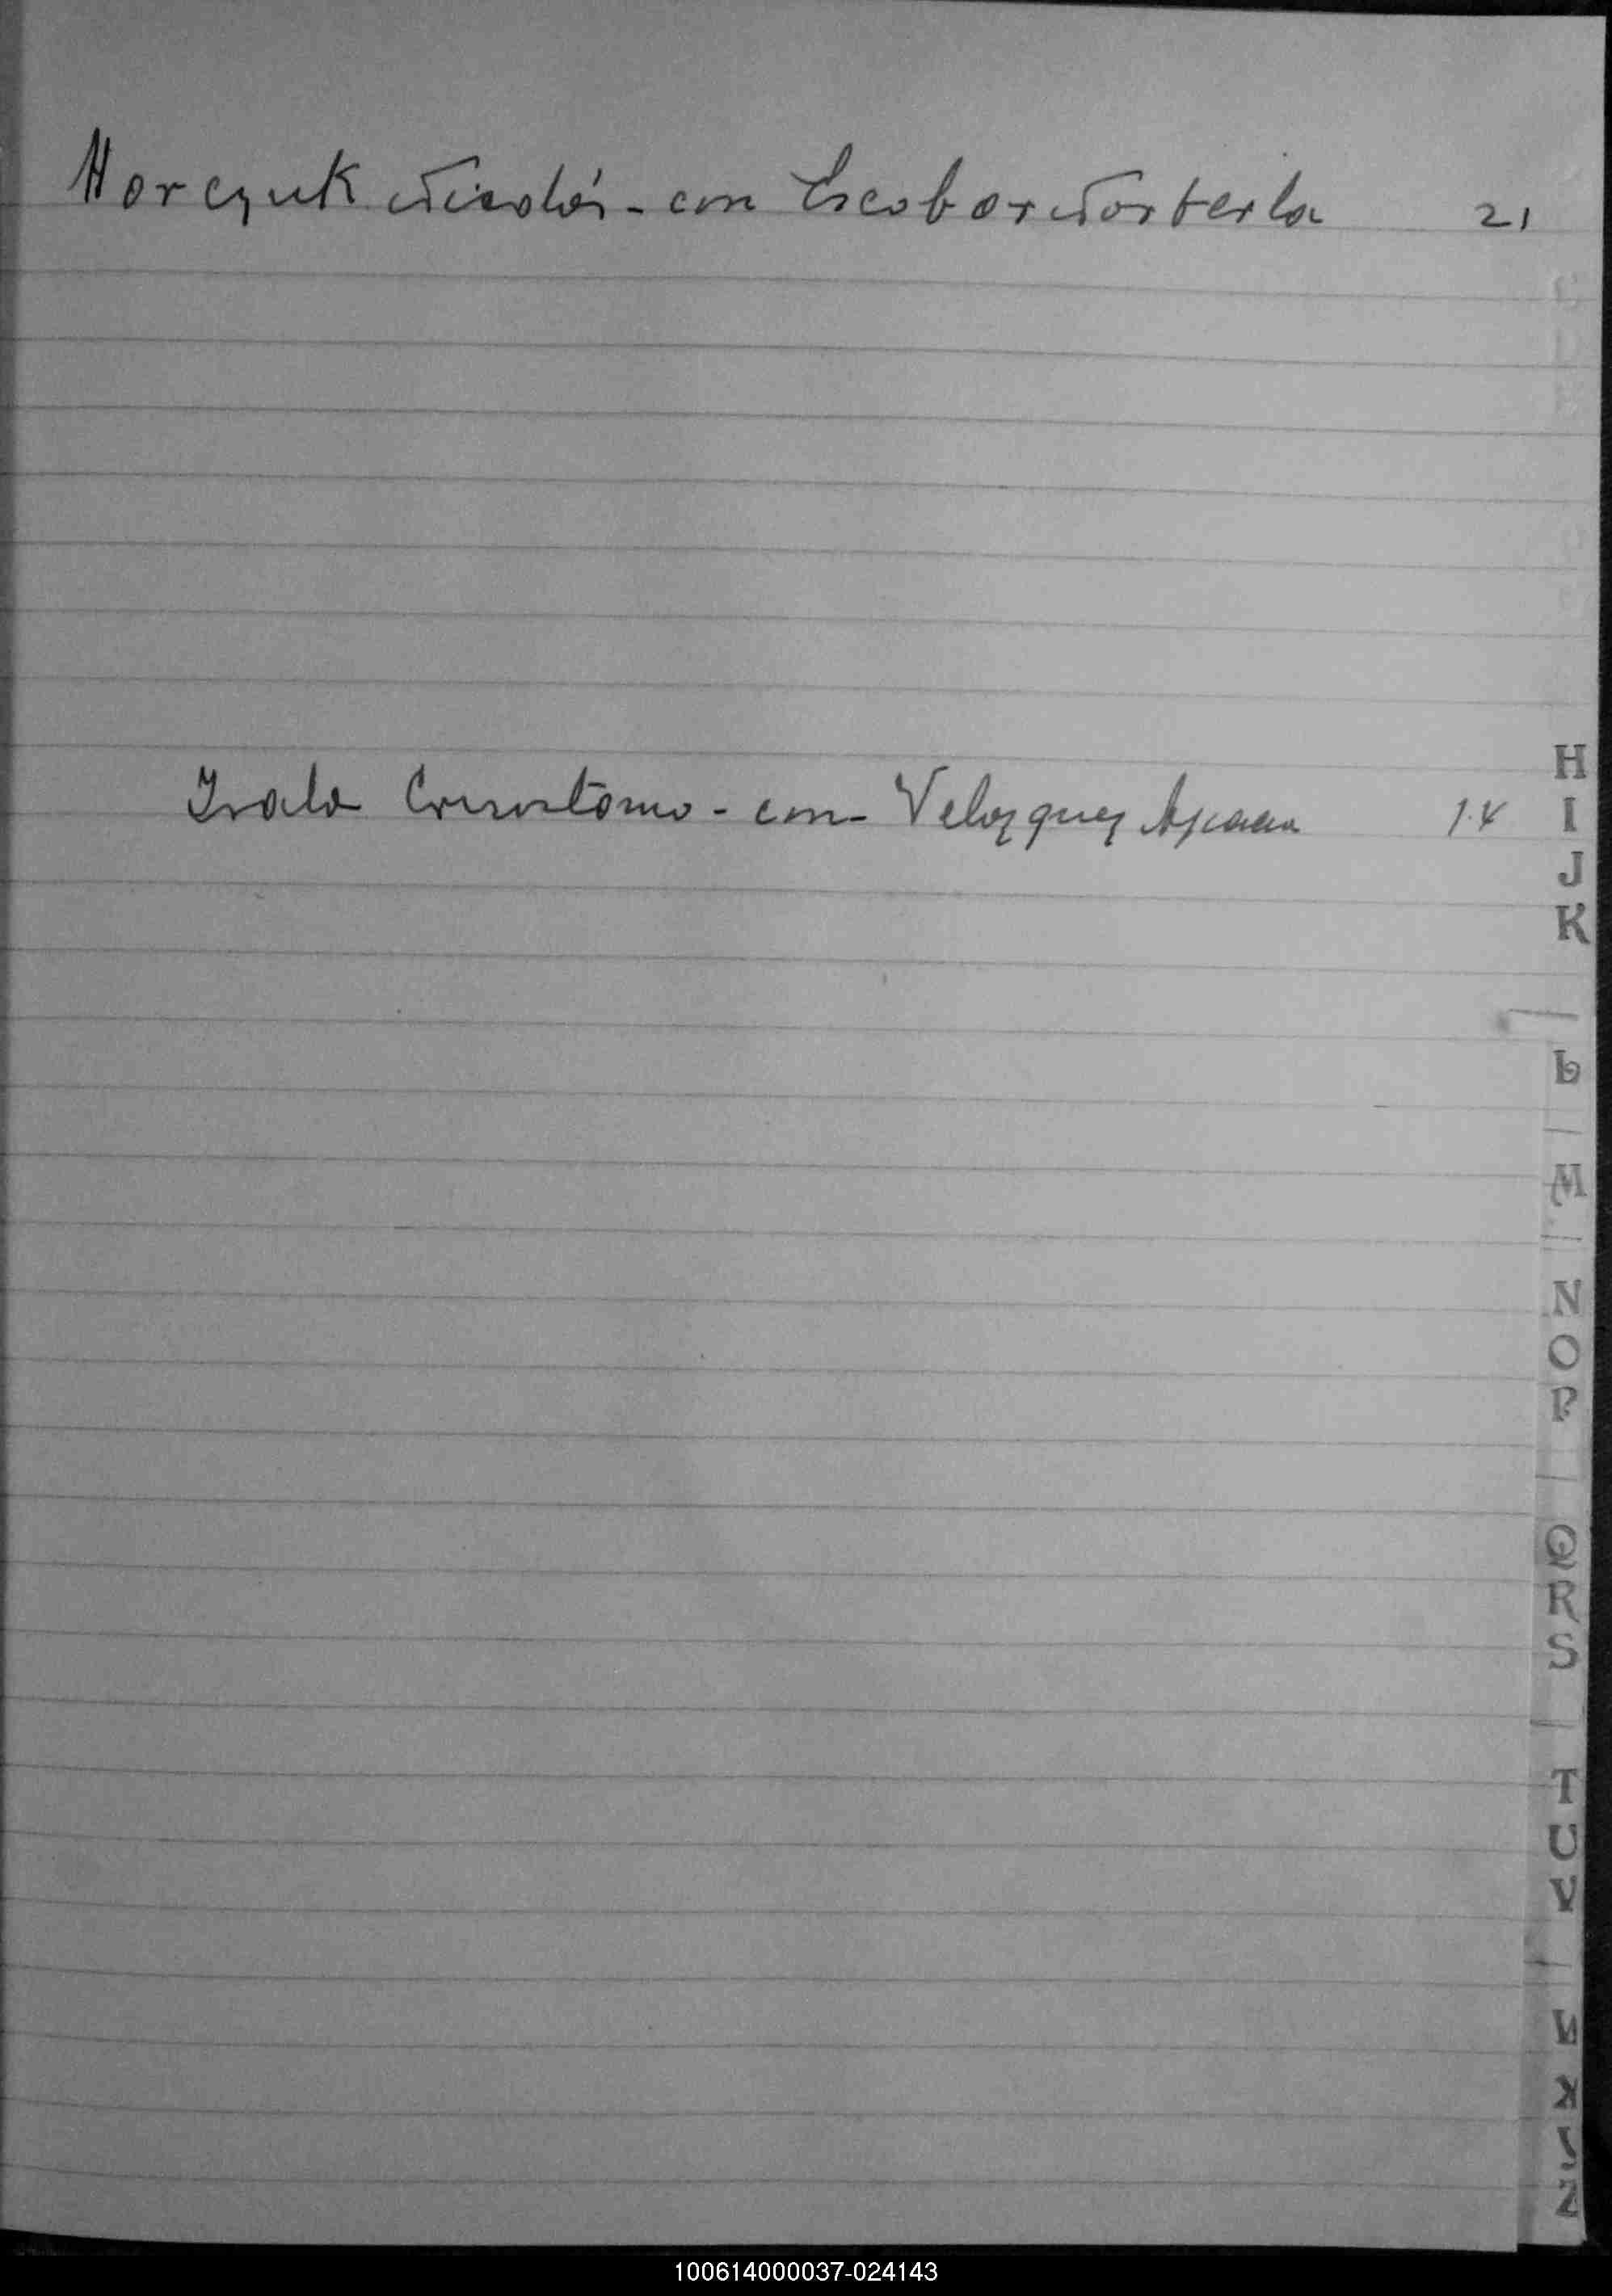 Horczuk Nicolás - con Escobar Norberta 21
Irala Crisostomo - con - Velozquez 14
H
I
J
K
L
M
N
O
P
Q
R
S
T
U
V
X
Z
100614000037-024143